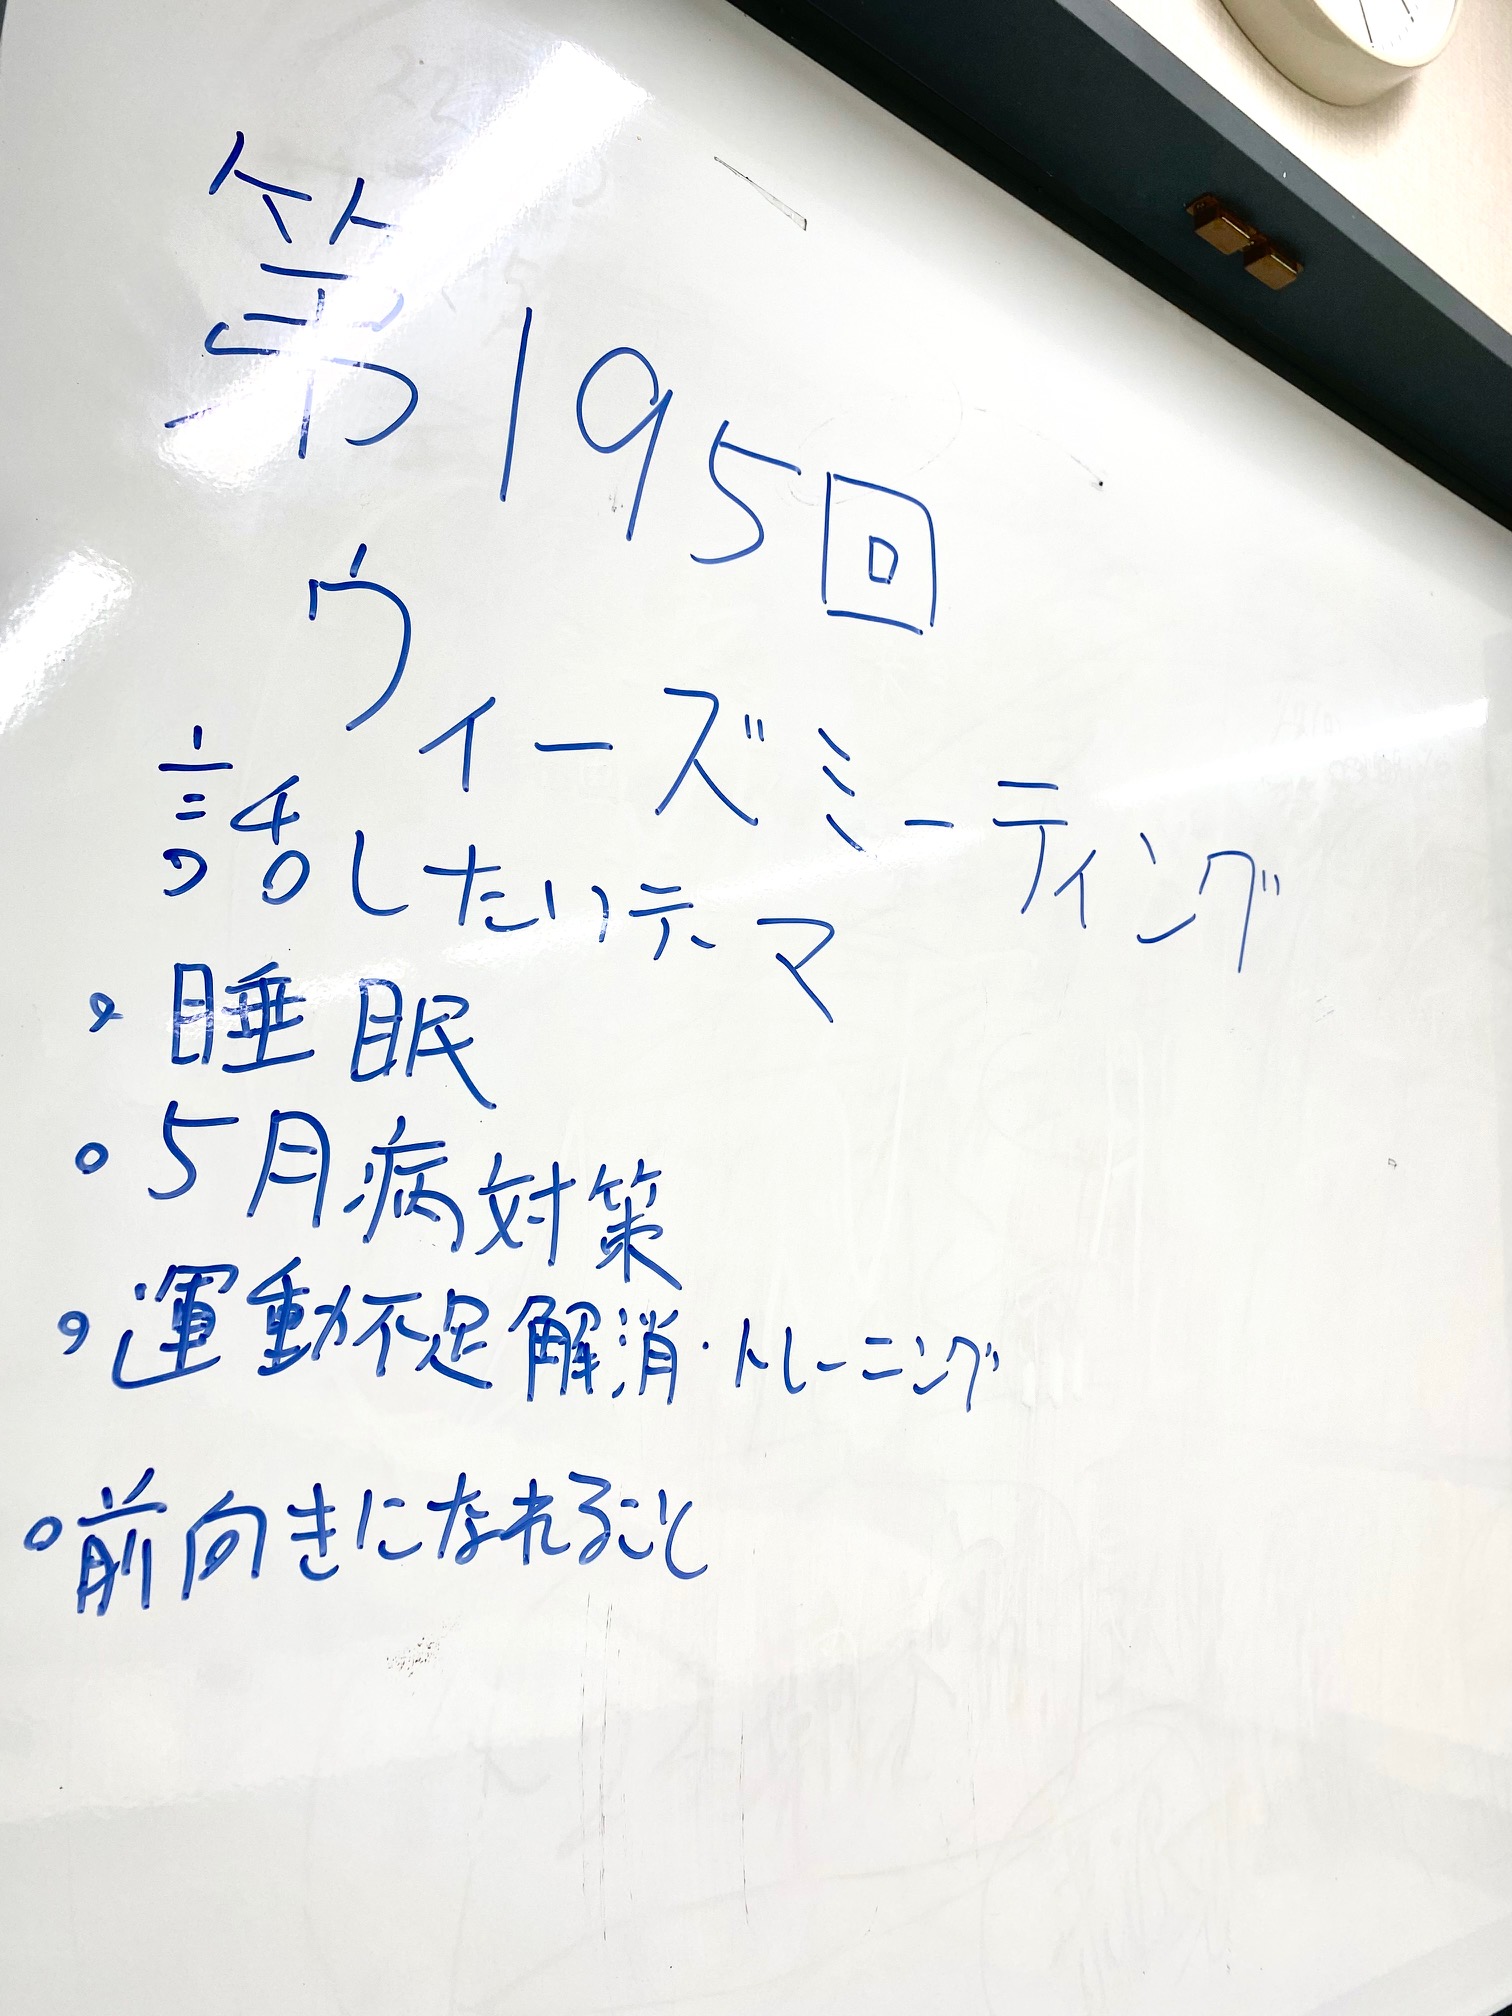 第195回
ウィーズミーティング
話したいテーマ
・睡眠
・5月病対策
・運動不足解消・トレーニング
・前向きになれること